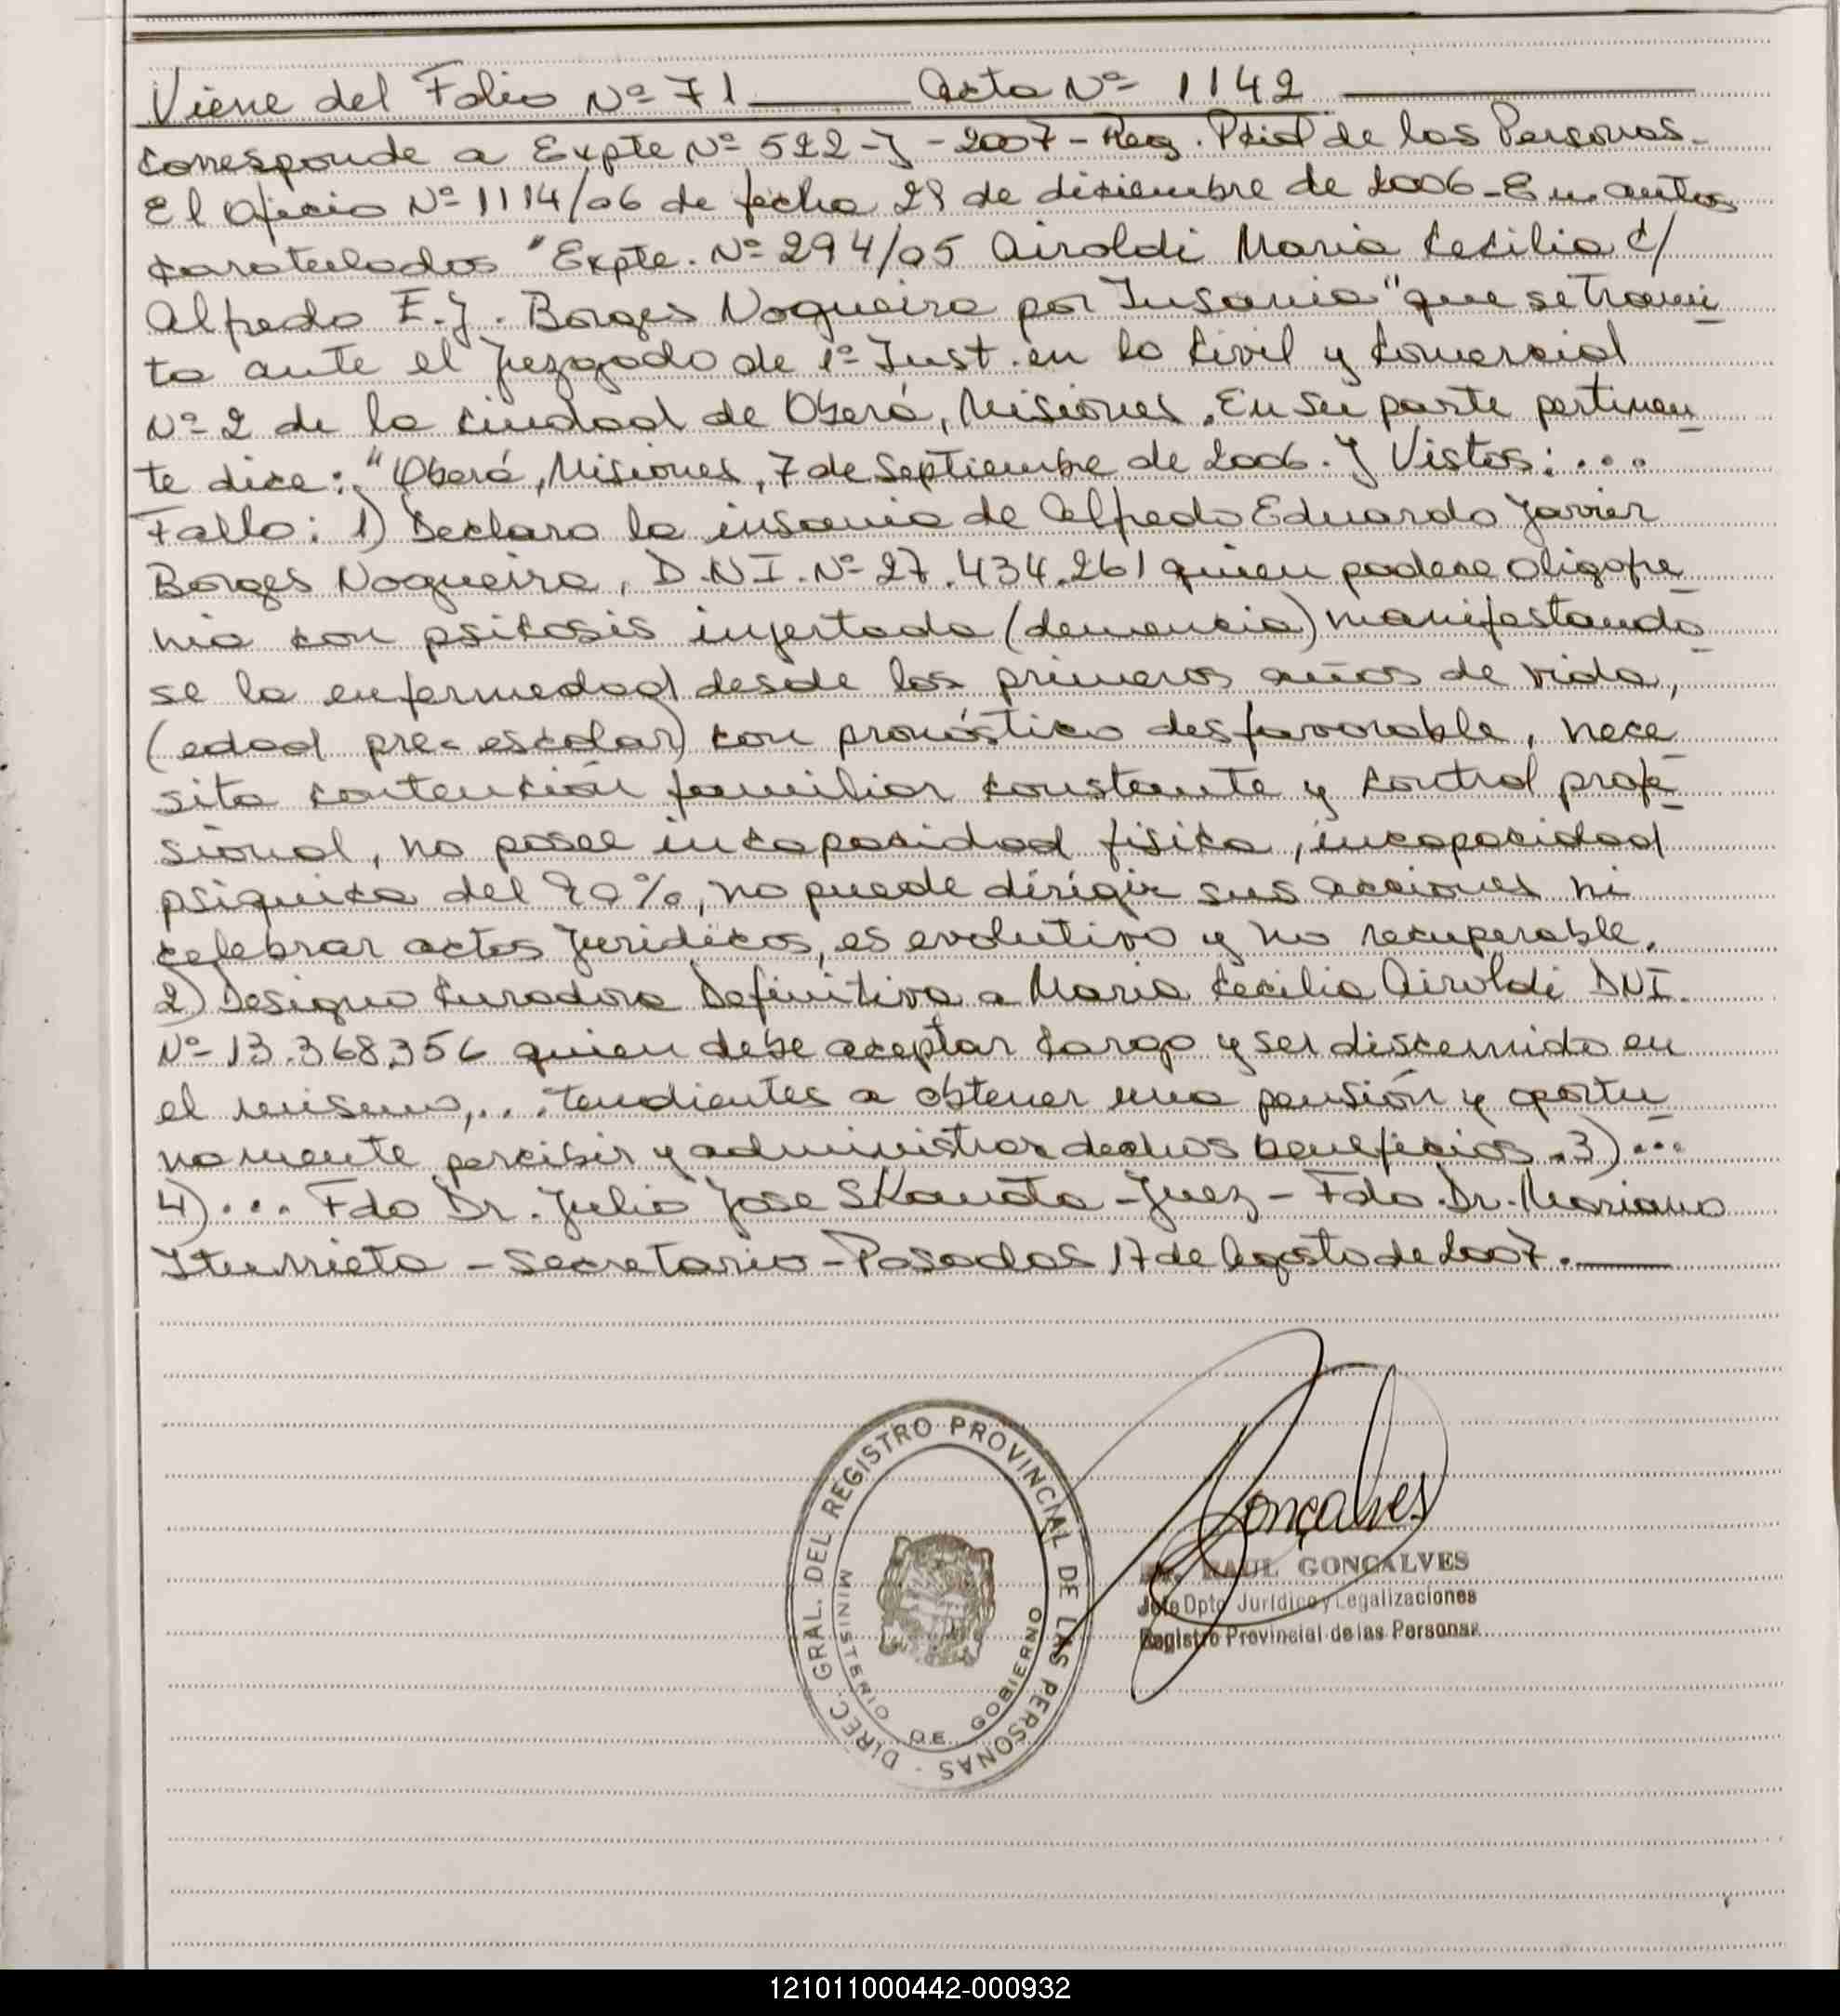 Viene del Folio Nº 71 Acta Nº 1142
corresponde a Expte Nº 522-J-2007-Reg. Pcial de las Personas.
El Oficio Nº 1114/06 de fecha 28 de diciembre de 2006-En autos
caratulados "Expte. Nº 294/05 Airoldi Maria Cecilia C/
Alfredo E.J. Borges Nogueira por Insania" que se trami
ta ante el Juzgado de 1º Inst. en lo Civil y Comercial
Nº 2 de la ciudad de Oberá, Misiones. En su parte pertinen
te dice: "Oberá, Misiones, 7 de Septiembre de 2006. Y Vistos: ...
Fallo: 1) Declaro la insania de Alfredo Eduardo Javier
Borges Nogueira, D.N.I. Nº 27.434.261 quien padece oligofre
nia con psicosis injertada (demencia) manifestando
se la enfermedad desde los primeros años de vida,
(edad pre-escolar) con pronóstico desfavorable, nece
sita contención familiar constante y control profe
sional, no posee incapacidad fisica, incapacidad
psiquica del 90%, no puede dirigir sus acciones ni
celebrar actos juridicos, es evolutivo y no recuperable.
2) Designo Curadora Definitiva a Maria Cecilia Airoldi DNI.
Nº 13.368.356 quien debe aceptar cargo y ser discernido en
el mismo,... tendientes a obtener una pensión y oportu
namente percibir y administrar dichos beneficios. 3)...
4)... Fdo Dr. Julio Jose Skanata - Juez - Fdo. Dr. Mariano
Iturrieta - Secretario - Posadas 17 de Agosto de 2007.
DIREC. GRAL. DEL REGISTRO PROVINCIAL DE LAS PERSONAS
MINISTERIO DE GOBIERNO
Gonçalves
RAUL GONCALVES
Jefe Dpto Jurídico y Legalizaciones
Registro Provincial de las Personas
121011000442-000932